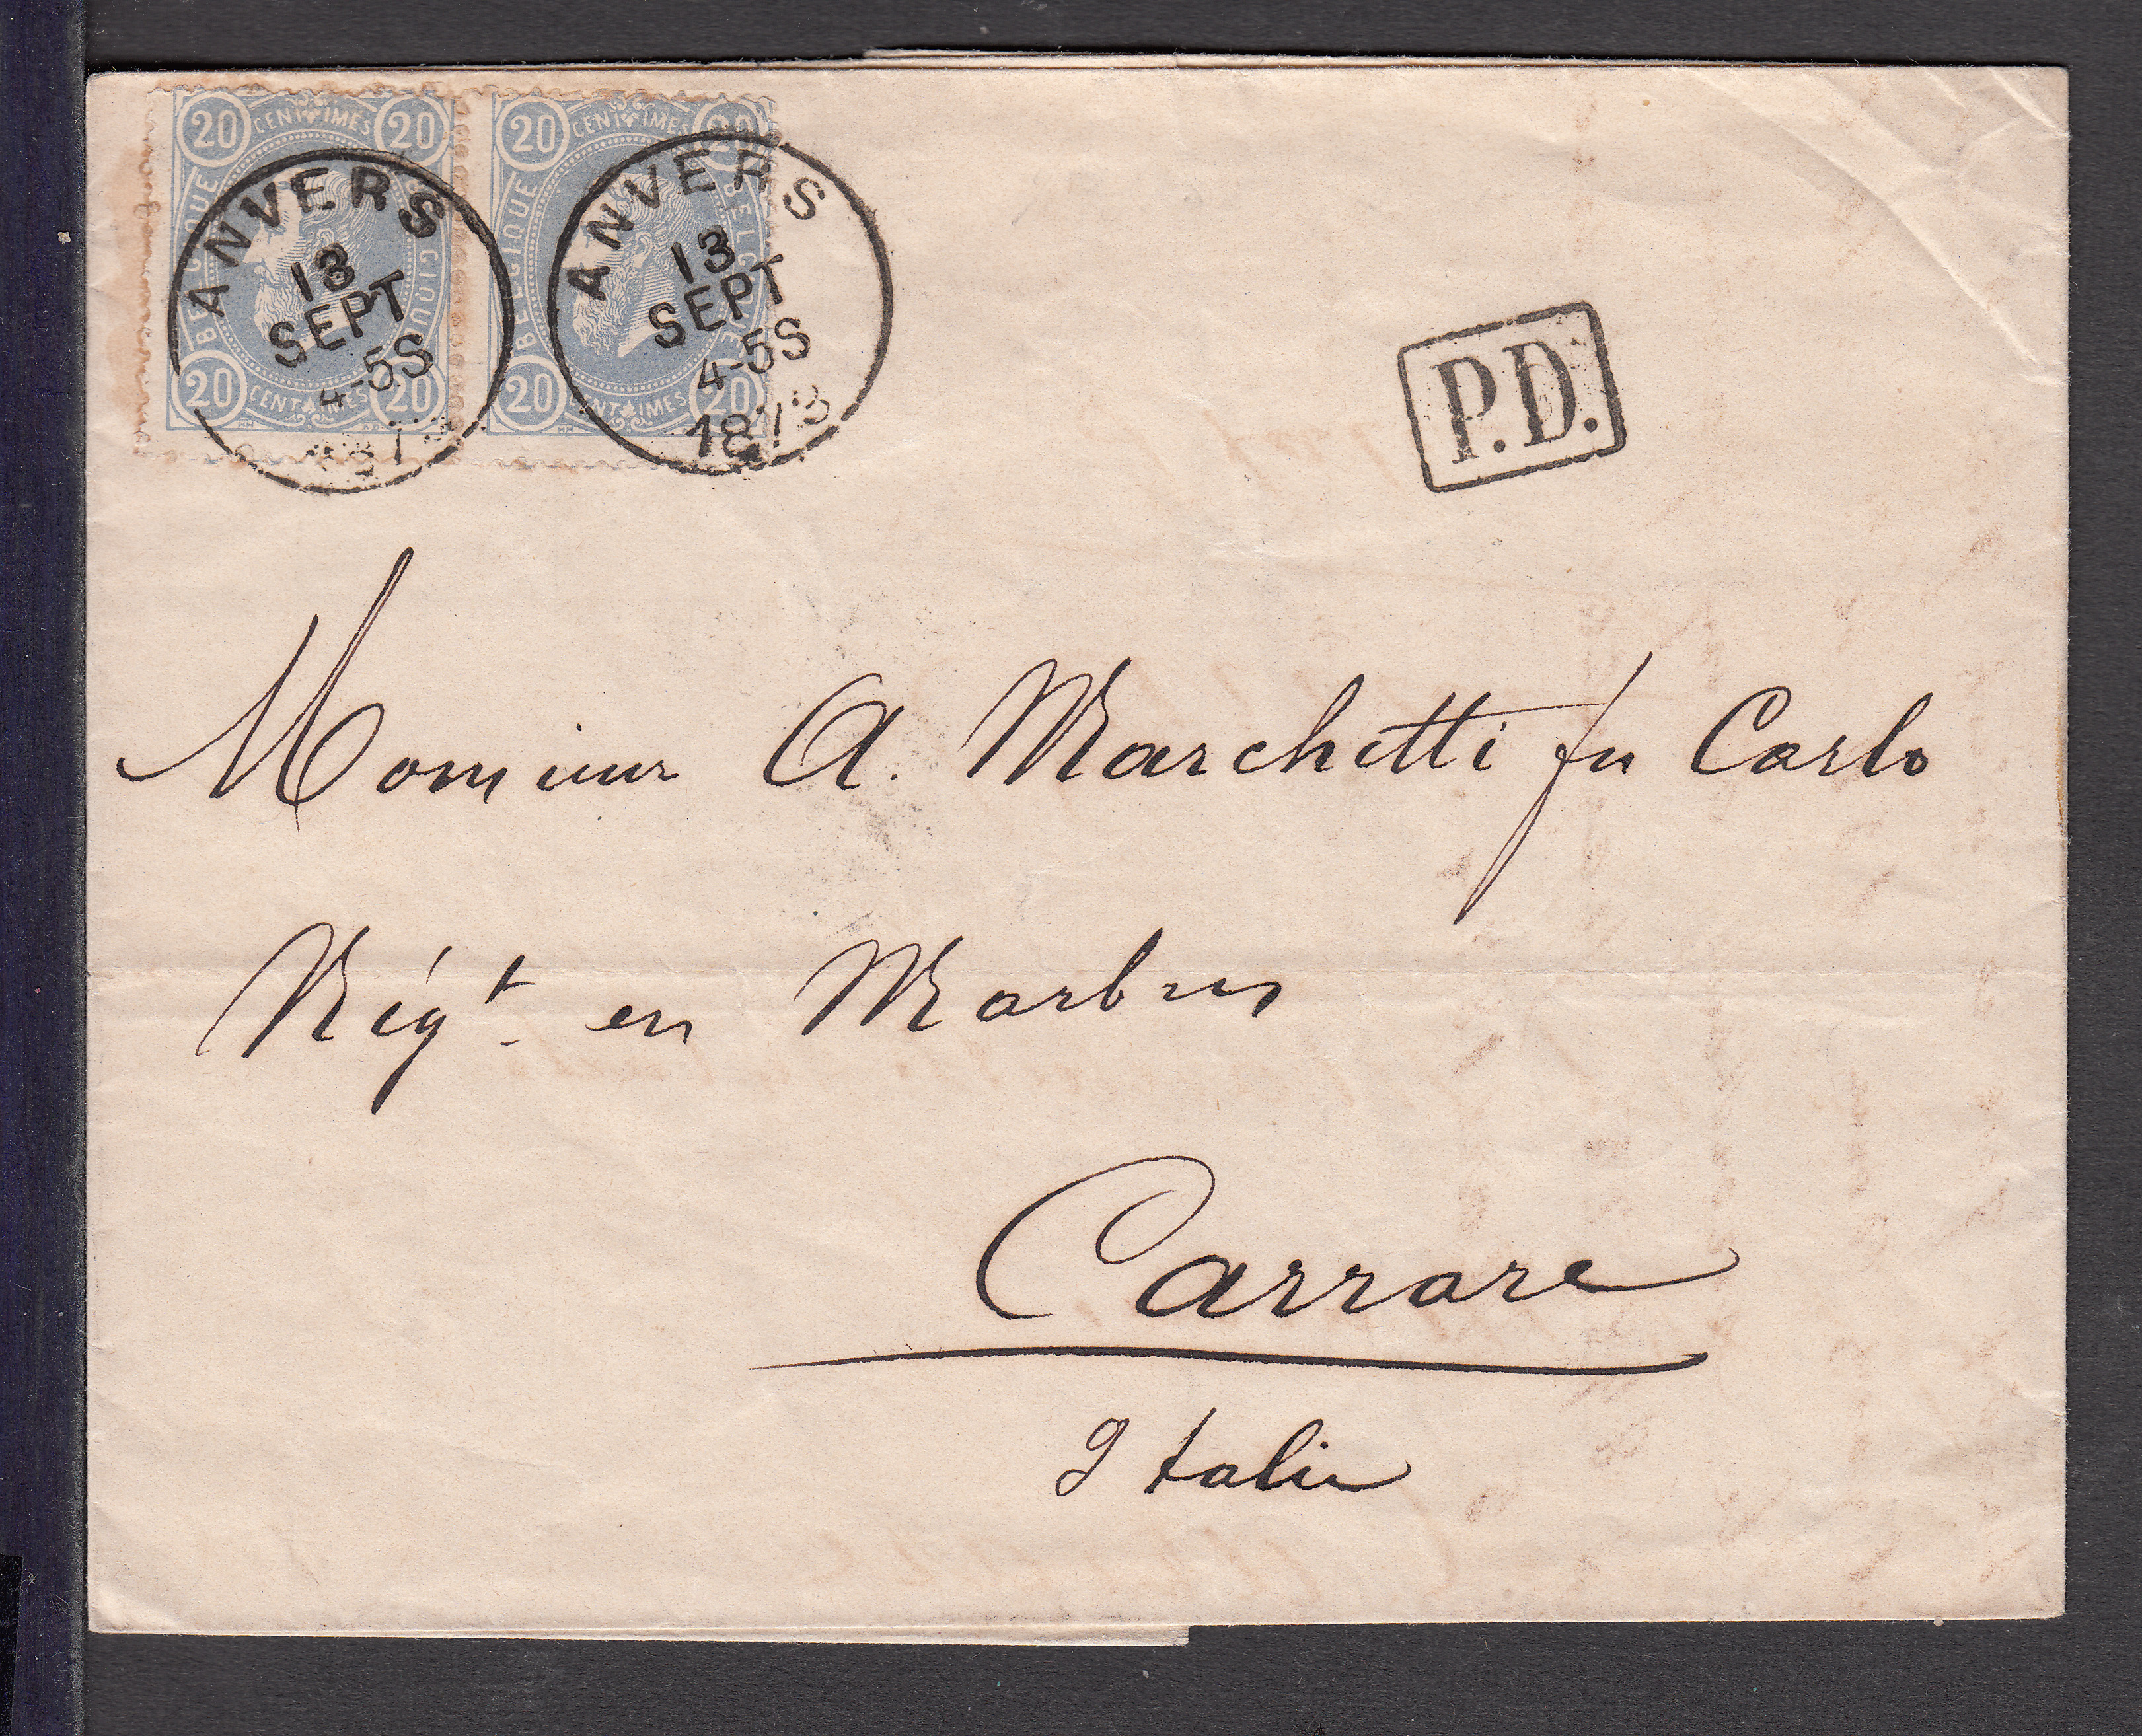 20 CENTIMES 20
BELGIQUE BELGIQUE
20 CENTIMES 20
20 CENTIMES 20
BELGIQUE BELGIQUE
20 CENTIMES 20
ANVERS
13
SEPT
4-5S
187
ANVERS
13
SEPT
4-5S
1873
P.D.
Monsieur A. Marchetti fu Carlo
Négt. en Marbres
Carrare
Italie